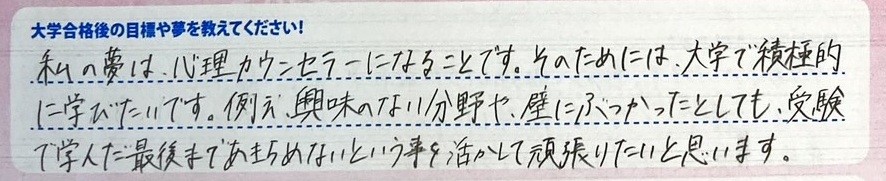 大学合格後の目標や夢を教えてください!
私の夢は、心理カウンセラーになることです。そのためには、大学で積極的
に学びたいです。例え、興味のない分野や、壁にぶつかったとしても、受験
で学んだ最後まであきらめないという事を活かして頑張りたいと思います。